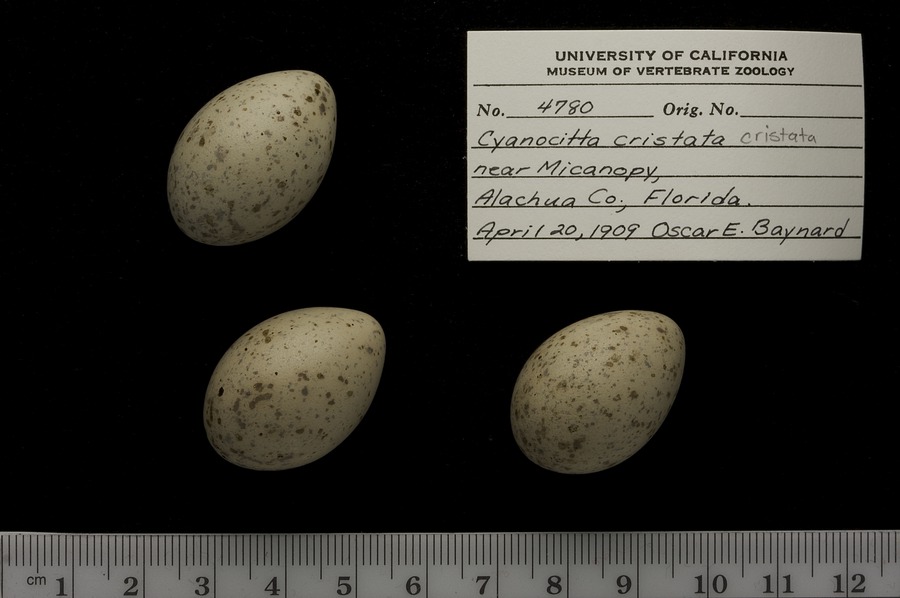 UNIVERSITY OF CALIFORNIA
MUSEUM OF VERTEBRATE ZOOLOGY
No. 4780 Orig. No.
Cyanocitta cristata cristata
near Micanopy,
Alachua Co., Florida.
April 20, 1909 Oscar E. Baynard
cm 1 2 3 4 5 6 7 8 9 10 11 12